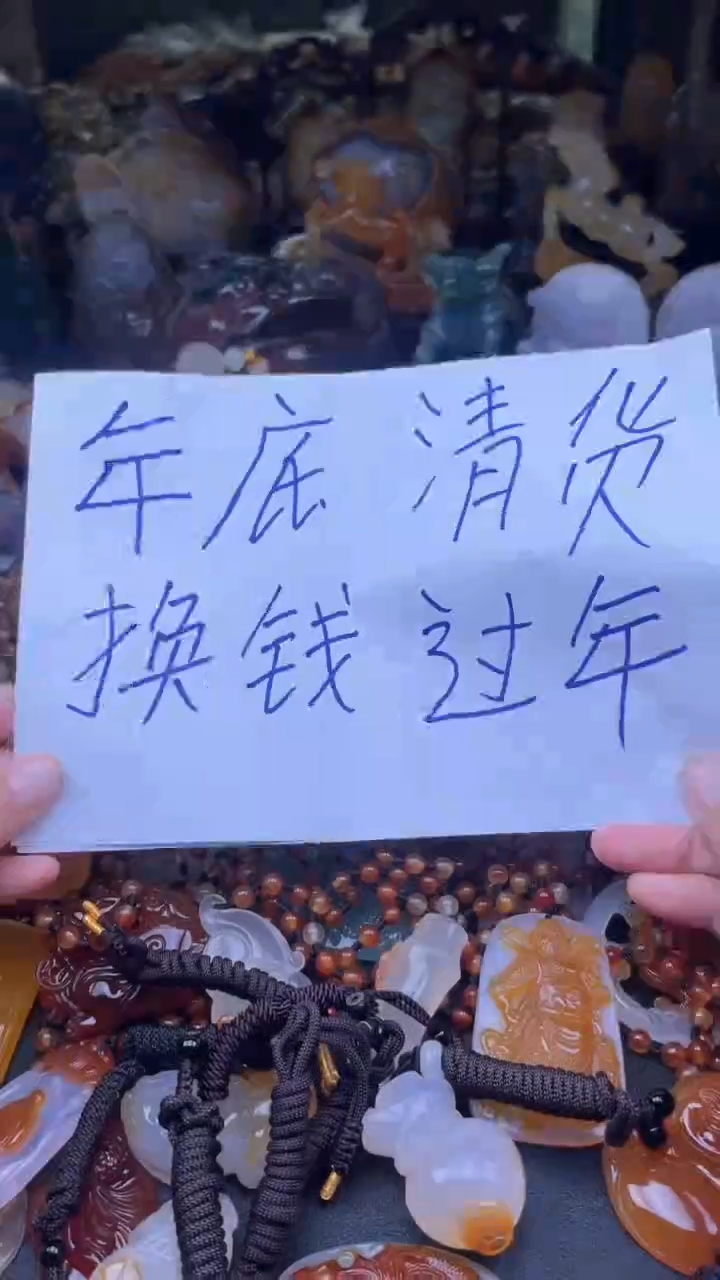 年底清货
换钱过年